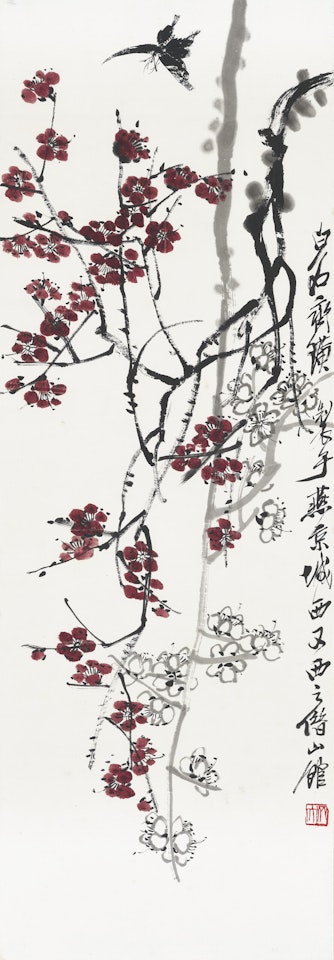 白石齊璜製于燕京城西又西之借山館